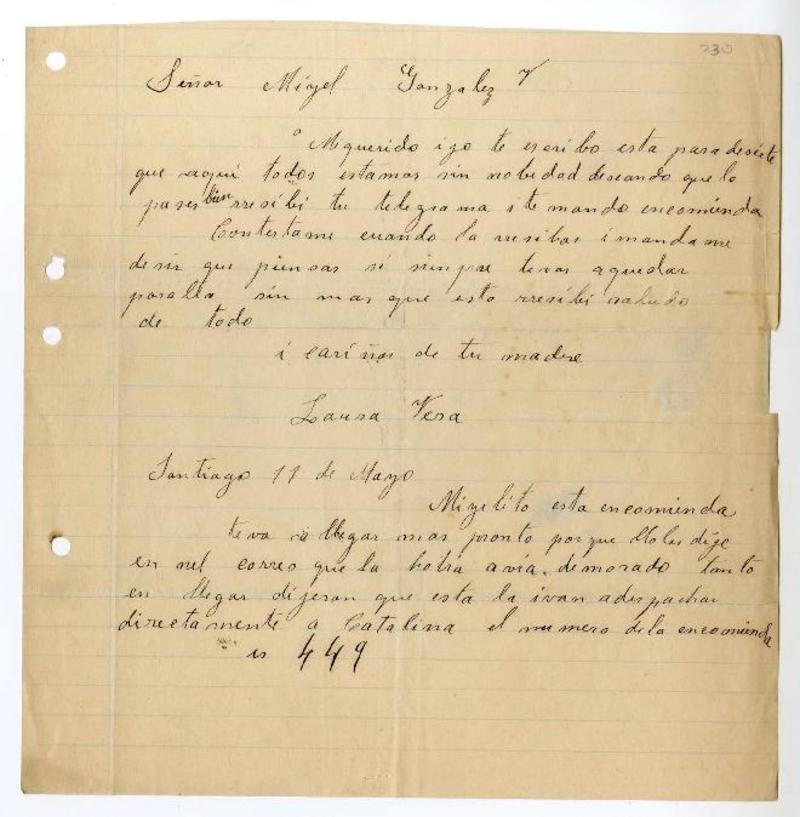 230
Señor Migel Gonzalez V
Mi querido ijo te escribo esta para desirte
que aquí todos estamos sin nobedad deseando que lo
pases bien rresibí tu telegrama i te mando encomienda
Contestame cuando la rresibas i mandame
desir que piensas si siempre tevas aquedar
poralla sin mas que esto rresibi saludo
de todo
i cariños de tu madre
Laura Vera
Santiago 11 de Mayo
Migelito esta encomienda
teva a llegar mas pronto porque llo les dije
en nel correo que la hotra avía demorado tanto
en llegar dijeron que esta la ivan adespachar
directamente a Catalina el numero dela encomienda
es 449